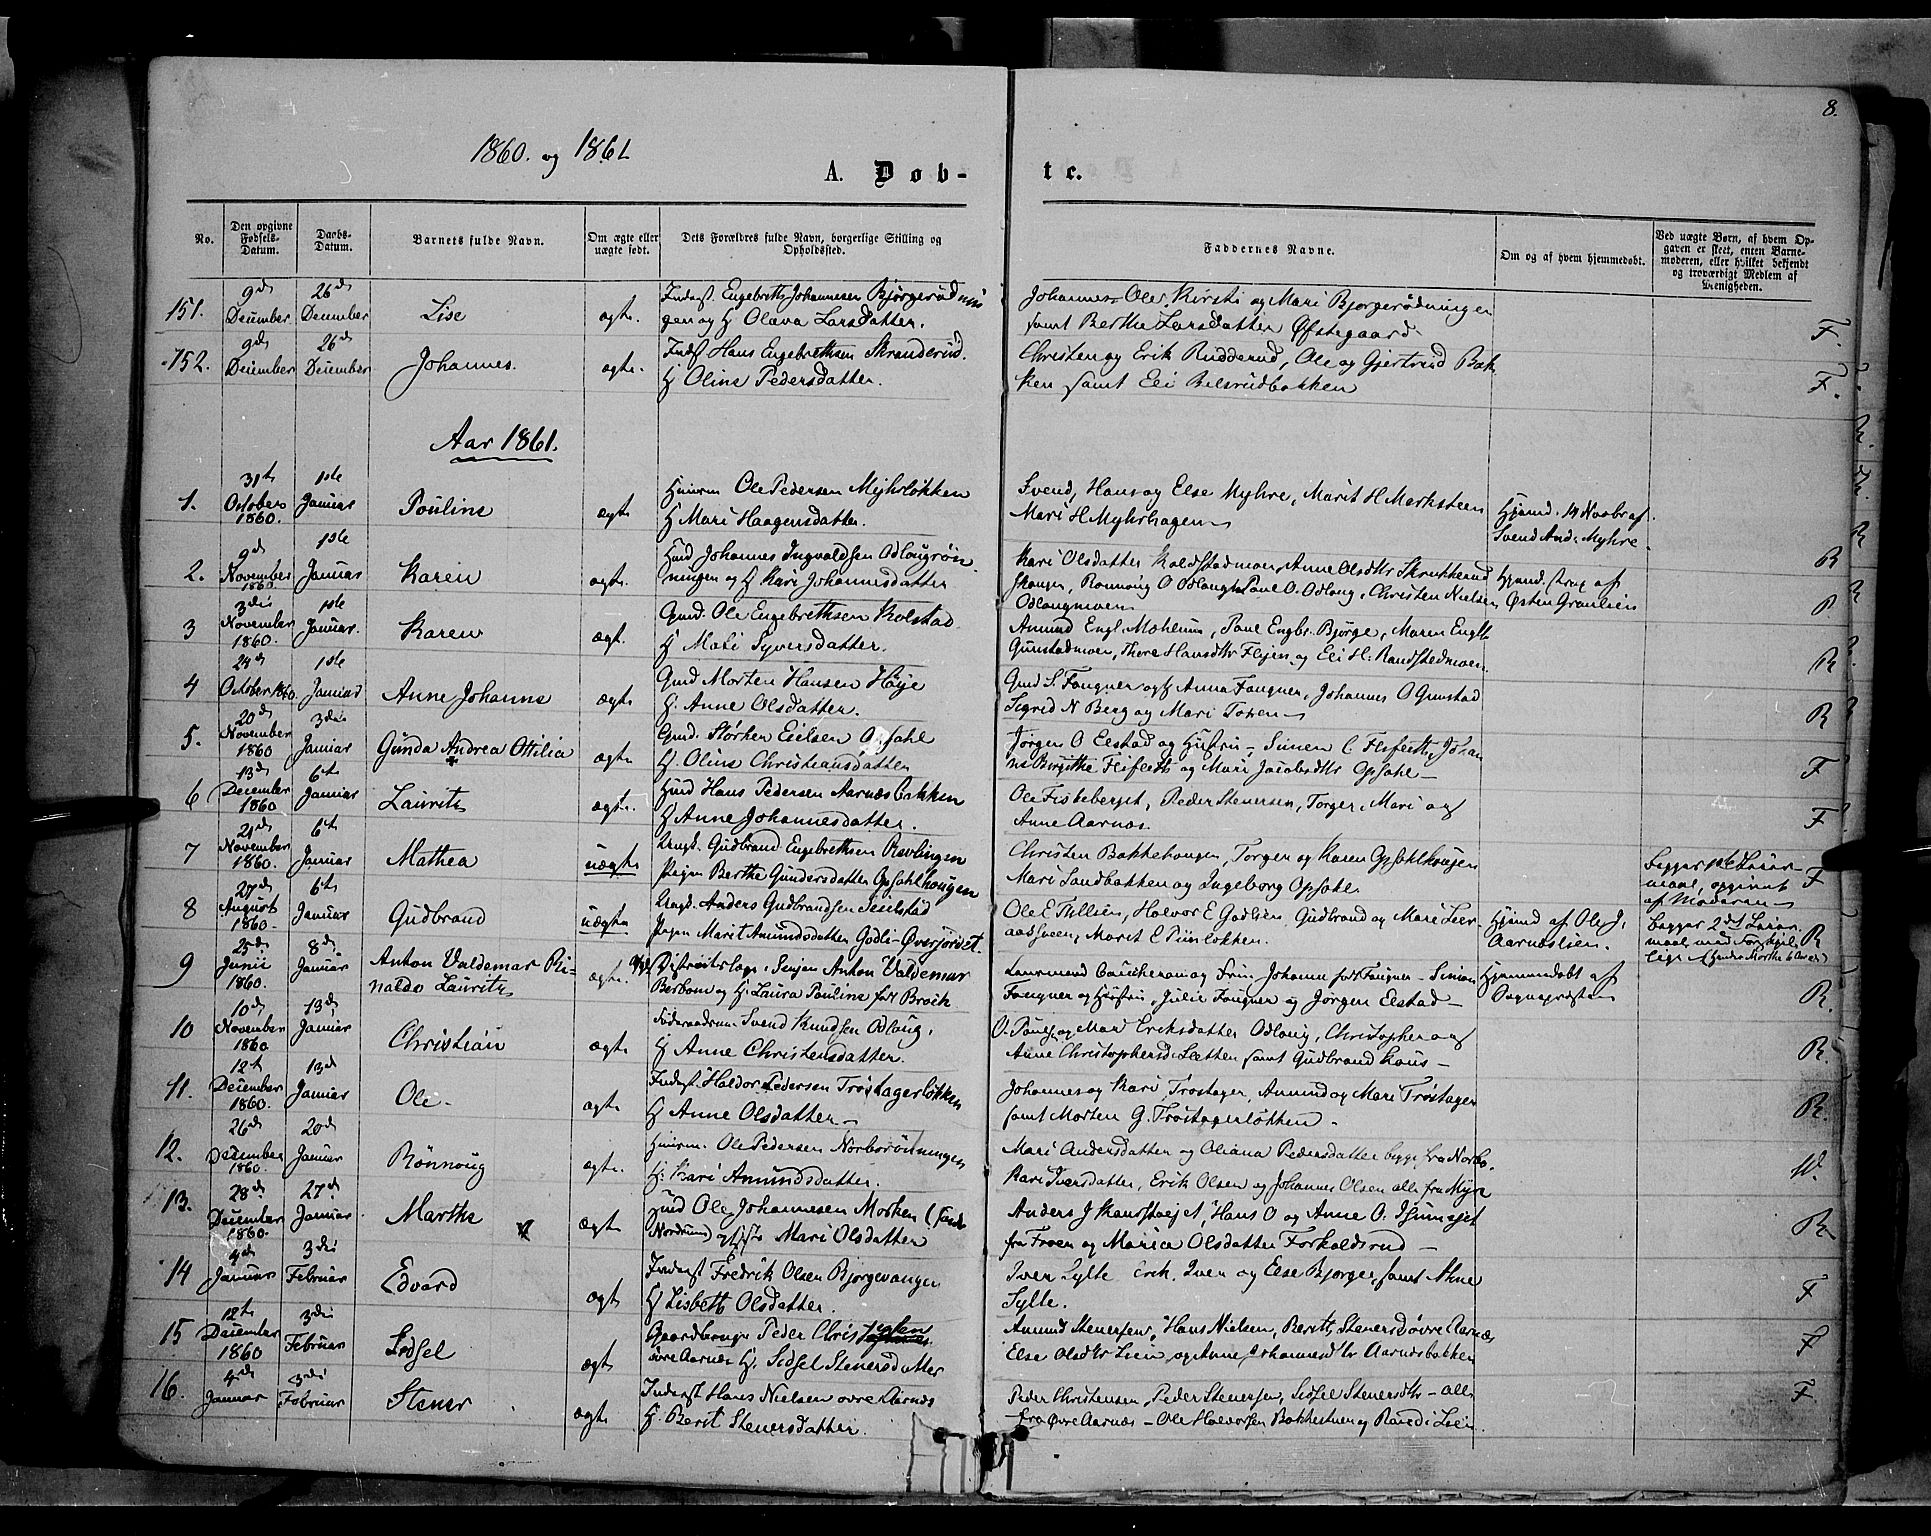 8.
1860. og 1861
A. Døb-
te.
No.
Den opgivne Fødsels-Datum.
Daabs-Datum.
Barnets fulde Navn.
Om ægte eller uægte født.
Dets Forældres fulde Navn, borgerlige Stilling og Opholdssted.
Faddernes Navne.
Om og af hvem hjemmedøbt.
Ved uægte Børn, af hvem Opgaven er skeet, enten Barnemoderen, eller hvilket bekjendt og troværdigt Medlem af Menigheden.
151.
9de December
26de December
Lise
ægte.
Inderst. Engebreth Johannesen Bjørgerødnin
gen og H Oleva Larsdatter.
Johannes Ole Kirsti og Mari Bjørgerødningen
samt Berthe Larsdatter Øfstegaard
F.
152.
9de December
26de December
Johannes.
ægte.
Inderst Hans Engebrethsen Skranderud.
H Oline Pedersdatter.
Christen og Erik Rudderud, Ole og Gjertrud Bak-
ken samt Eli Belsrudbakken
F.
Aar 1861.
1.
31te October 1860.
1ste Januar
Pouline
ægte
Huusm Ole Pedersen Myhrløkken
H Mari Haagensdatter.
Svend, Hans og Else Myhre, Marit H Merksteen
Mari H Myhrhagen
Hjemd. 14 Novbr af
Svend And: Myhre
2.
9de November 1860.
1ste Januar
Karen
ægte.
Huusm Johannes Ingvaldsen Odlougrøn
ningen og H Kari Johannesdatter
Kari Olsdatter Kolstadmoen, Anne Olsdtr Skrukkerud
haugen, Rønnoug O Odloug, Poul O. Odloug, Christen Nielsen
Odlougmoen
Hjemd. strax af
Østen Graulien
R
3
3die November 1860.
1ste Januar.
Karen
ægte.
Gmd. Ole Engebrethsen Kolstad
H Mari Syversdatter.
Amund Engl. Mæhlum, Poul Engbr. Bjørge, Maren Englb
Gunstadmoen, Thore Hansdtr Flejen og Eli H. Randstedmoen
R
4
24de October 1860.
1ste Januar
Anne Johanne
ægte
Gmd Morten Hansen Høye
H. Anne Olsdatter.
Gmd S. Faugner og H Anna Faugner, Johannes O Gunstad
Sigrid N Berg og Mari Toxen
R
5.
20de November 1860
3die Januar
Gunda Andrea Ottilia
ægte
Gmd. Størker Eielsen Opsahl
H. Oline Christiansdatter
Jørgen O Elstad og Hustru – Simen C. Fliflet, Johan
ne Birgithe Fliflet og Mari Jacobsdtr Opsahl
F
6
13de December 1860
6te Januar
Lauritz
ægte.
Huusm Hans Pedersen Aarnæsbakken
H Anne Johannesdatter.
Ole Fiskeberget, Peder Stenersen, Torger, Mari og
Anne Aarnæs
F
7
21de November 1860.
6te Januar
Mathea
uægte
Ungk. Gudbrand Engebrethsen Revlingen
Pigen Berthe Gundersdatter Opsahlhougen
Christen Bakkehougen, Torger og Karen Opsahlhougen
Mari Sandbakken og Ingeborg Opsahl
Begges 1ste Leier-
maal, opgivet
af Moderen
F
8
27de August 1860.
6te Januar
Gudbrand
uægte
Ungk. Anders Gudbrandsen Teielstad
Pigen Marit Amundsdatter Godli-Øverjordet
Ole E Tullien, Halvor E Godlien, Gudbrand og Mari Leer-
aasveen, Marit C Piinløkken.
Hjemd af Ole J.
Aarneslien.
Begges 2det Leier-
maal med Forskjel-
lige
R
9
25de Junii 1860.
8de Januar
Anton Valdemar Ri-
naldo Lauritz
ægte.
Districtslæge i Senjen Anton Valdemar
Berbom og H. Laura Pauline født Broch
Faugner og Hustru, Julie Faugner og Jørgen Elstad
Hjemmedøbt af
Sognepræsten
R.
10
10de November 1860
13de Januar
Christian
ægte
Føderaadsm. Svend Knudsen Odloug,
H Anne Christensdatter.
O. Poul og Mari Eriksdatter Odloug, Christopher og
Anne Christophersd. Sletten samt Gudbrand Haus
R
11.
12te December 1860.
13de Januar
Ole
ægte
Inderst Haldor Pedersen Trøstagerløkken
H Anne Olsdatter
Johannes og Kari Trøstager, Amund og Mari Trøstager
samt Morten G. Trøstagerløkken.
R.
12.
26de December 1860.
20de Januar
Rønnoug
ægte.
Huusm. Ole Pedersen Norborødningen
H. Kari Amundsdatter.
Mari Andersdatter og Oliana Pedersdatter begge fra Norbo.
Kari Iversdatter, Erik Olsen og Johannes Olsen alle fra Myre
13.
28de December 1860.
27de Januar
Marthe
ægte
Huusm Ole Johannesen Morken (Søndre
Nordrum) og H Mari Olsdatter
Anders J Kanstøejet, Hans O og Anne O.
fra Froen og Marie Olsdatter Forkalsrud
R
14
4de Januar
3die Februar
Edvard
ægte
Inderst Fredrik Olsen Bjørgevangen
H Lisbeth Olsdatter.
Iver Sylte Erik, Iver og Else Bjørge, samt Anne
Sylte.
F
15
12te December 1860
3die Februar
Sidsel
ægte
Gaardbruger Peder Christensen
øvre Aarnæs H. Sidsel Stenersdatter
Amund Stenersen, Hans Nielsen, Berith Stenersd øvre Aarnæs
Else Olsdtr Lien og Anne Johannesdtr Aarnæsbakken
F
16.
4de Januar
3die Februar
Stener
ægte
Inderst Hans Nielsen øvre Aarnæs
H. Berit Stenersdatter.
Peder Christensen, Peder Stenersen, Sidsel Stenersdtr – alle
fra Øvre Aarnæs – Ole Halvorsen Bakkestuen og Randi Lien
F.